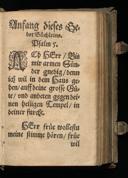 Anfang dieses Ge-
bet Büchleins.
Psalm 5.
ACh HErr / Bin
mir armen Sün-
der gnädig / denn
ich wil in dein Haus ge-
hen / auff deine grosse Gü-
te / und anbeten gegen dei-
nen heiligen Tempel / in
deiner furcht.
HErr früe wollestu
meine stimme hören / früe
wil